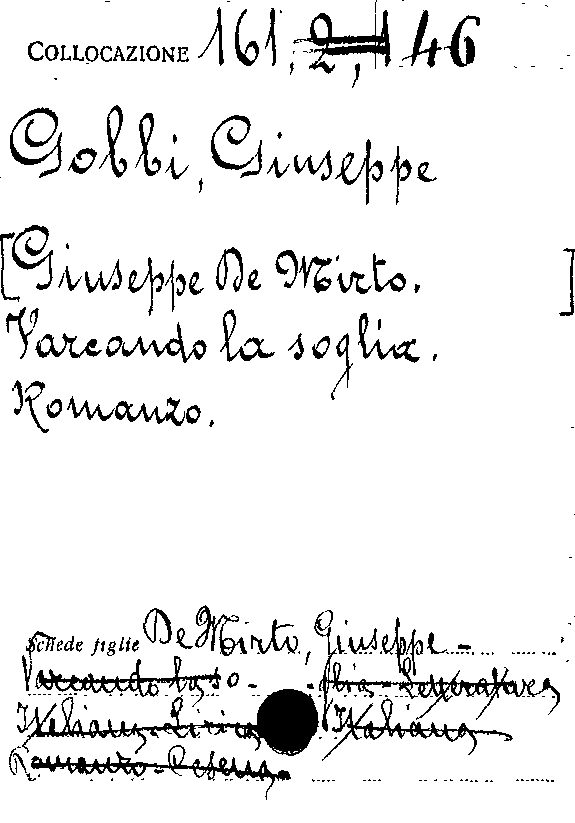 COLLOCAZIONE 161, 2, 146
Gobbi, Giuseppe
[Giuseppe De Mirto. ]
Varcando la soglia.
Romanzo.
Schede figlie De Mirto, Giuseppe -
Varcando la so - glia - Letteratura
Italiana - Lirica Italiana
Romanzo -